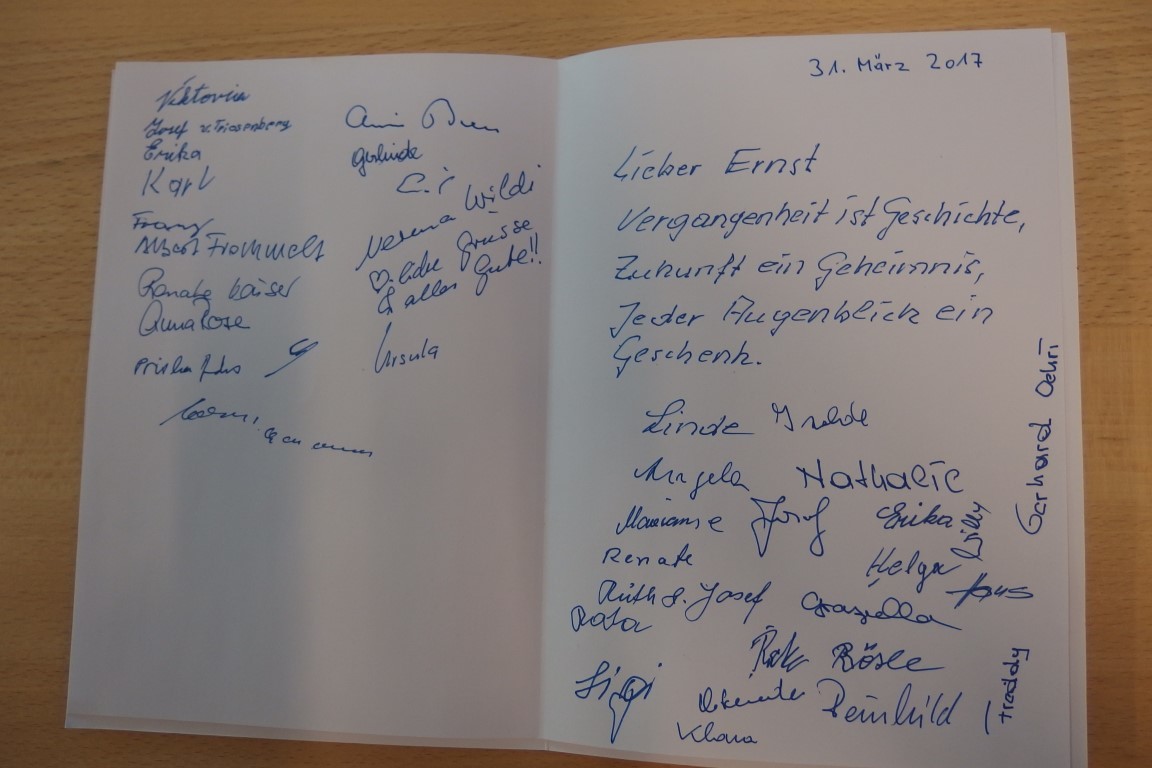 Viktoria
Josef v. Triesenberg
Erika
Karl
Franz
Albert Frommelt
Renate Kaiser
AnnaRose
Gerlinde
Verena Wildi
liebe Grüsse
& alles Gute!!
Ursula
31. März 2017
Lieber Ernst
Vergangenheit ist Geschichte,
Zukunft ein Geheimnis,
Jeder Augenblick ein
Geschenk.
Linde Isolde
Angela Nathalie
Marianne Josef Erika Willy
Renate Helga
Ruth & Josef Graziella Hans
Rösle
Sigi Reinhild
Klara
Gerhard Oehri
freddy